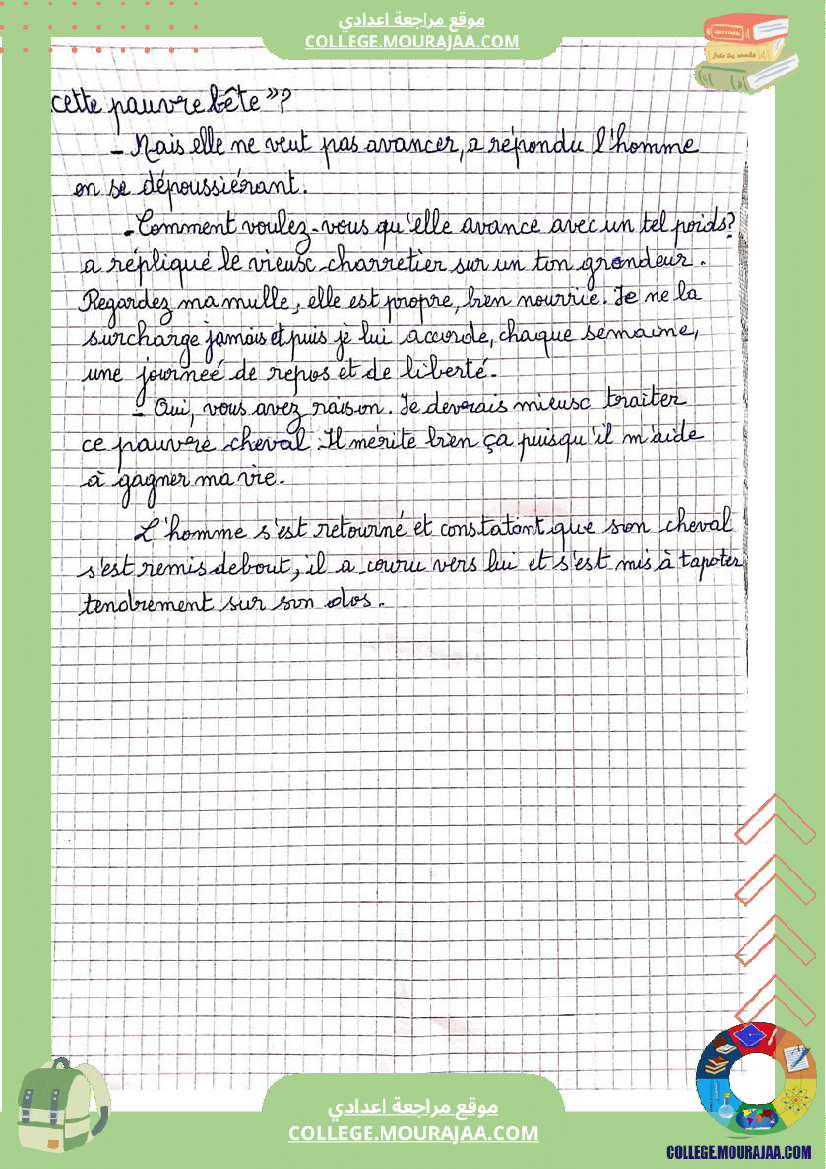 موقع مراجعة اعدادي
COLLEGE.MOURAJAA.COM
cette pauvre bête »?
- Mais elle ne veut pas avancer, a répondu l'homme
en se dépoussiérant.
- Comment voulez-vous qu'elle avance avec un tel poids?
a répliqué le vieux charretier sur un ton grondeur.
Regardez ma mulle, elle est propre, bien nourrie. Je ne la
surcharge jamais et puis je lui accorde, chaque semaine,
une journeé de repos et de liberté.
- Oui, vous avez raison. Je deverais mieux traiter
ce pauvere cheval. Il mérite bien ça puisqu'il m'aide
à gagner ma vie.
L'homme s'est retourné et constatant que son cheval
s'est remis debout, il a couru vers lui et s'est mis à tapoter
tendrement sur son dos.
موقع مراجعة اعدادي
COLLEGE.MOURAJAA.COM
COLLEGE.MOURAJAA.COM